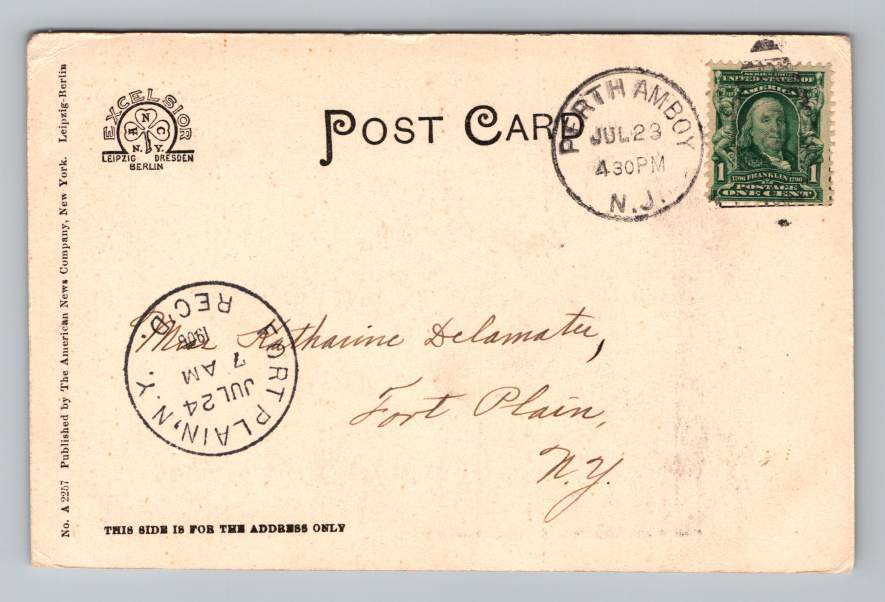 No. A 2257 Published by The American News Company, New York. Leipzig-Berlin
EXCELSIOR
A N C
N.Y.
LEIPZIG DRESDEN
BERLIN
POST CARD
PERTH AMBOY
JUL 23
4 30 PM
N.J.
SERIES 1902
UNITED STATES OF
AMERICA
1706 FRANKLIN 1790
1 1
POSTAGE
ONE CENT
FORT PLAIN, N.Y.
JUL 24
7 AM
1906
REC'D.
Miss Katharine Delamater,
Fort Plain,
N.Y.
THIS SIDE IS FOR THE ADDRESS ONLY